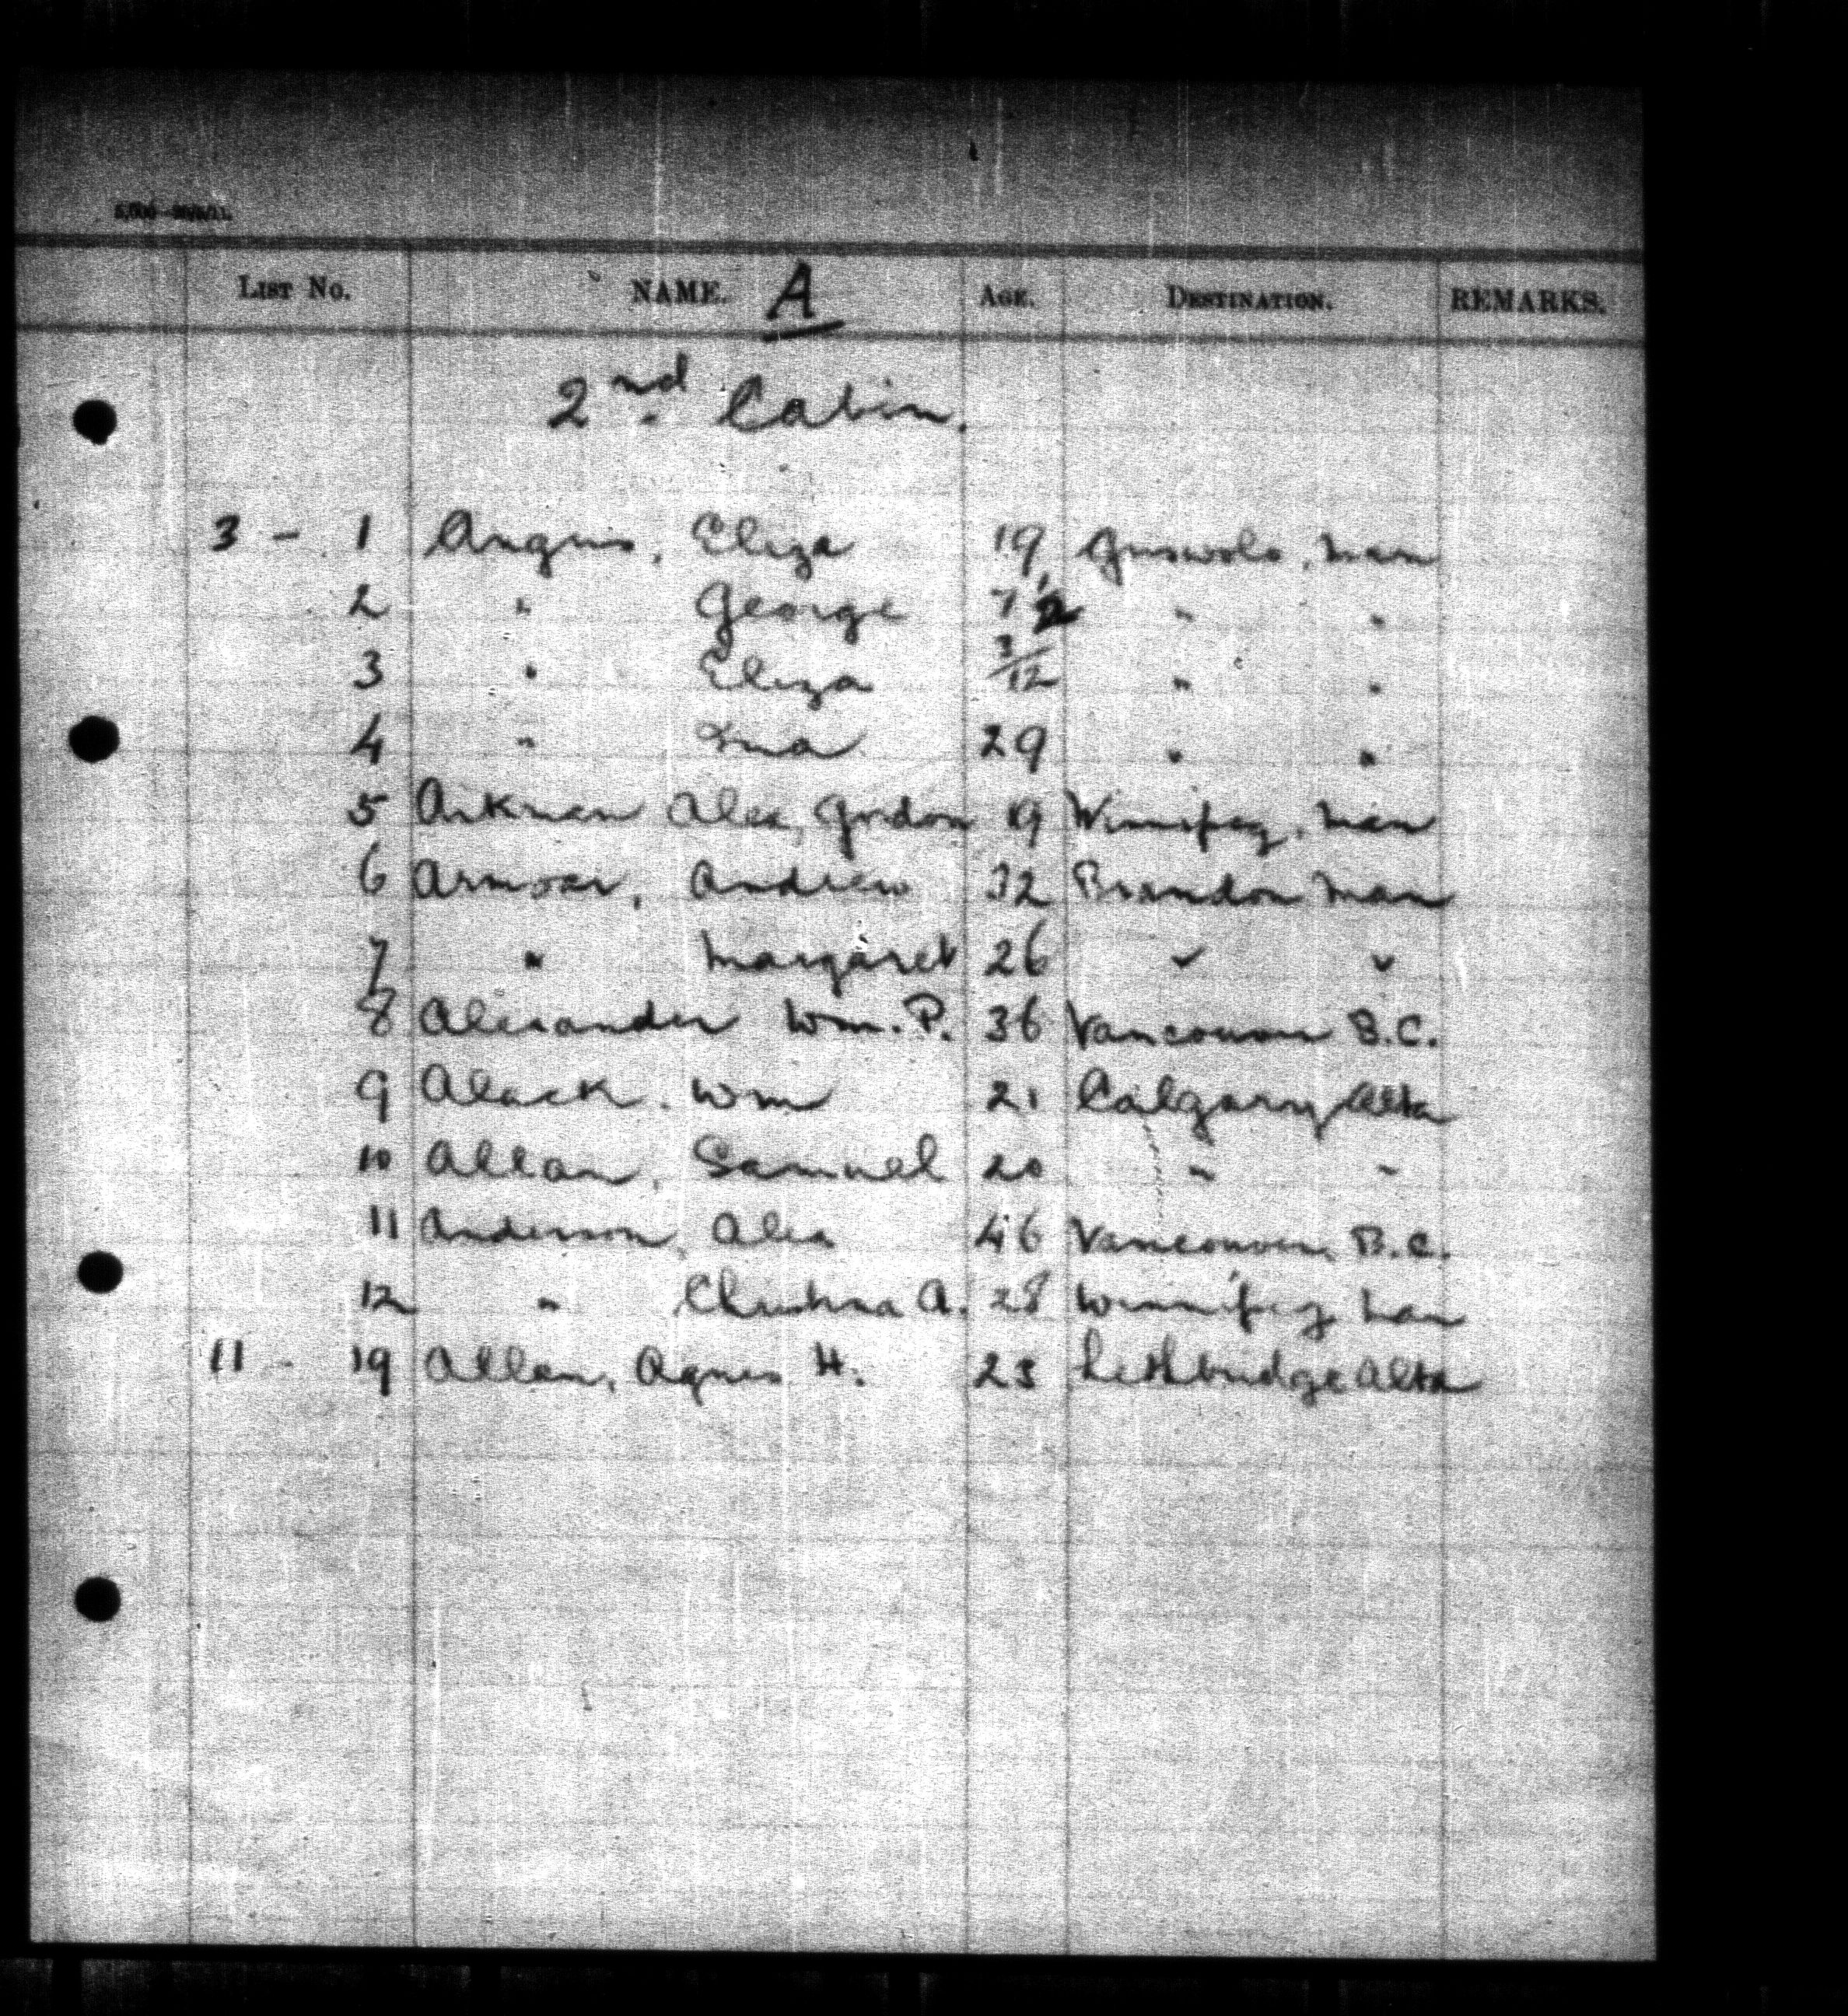 LIST No. NAME. A AGE. DESTINATION. REMARKS.
2nd Cabin.
3 - 1 Angus, Eliza 19 Griswold, Man
2 " George 7½ " "
3 " Eliza 3/12 " "
4 " Ina 29 " "
5 Aikman Alex, Gordon 19 Winnipeg, Man
6 Armour, Andrew 32 Brandon Man
7 " Margaret 26 " "
8 Alexander Wm. P. 36 Vancouver B.C.
9 Alack. Wm 21 Calgary Alta
10 Allan, Samuel 20 " "
11 Anderson, Alex 46 Vancouver, B.C.
12 " Christina A. 28 Winnipeg Man
11 - 19 Allan, Agnes H. 25 Lethbridge Alta